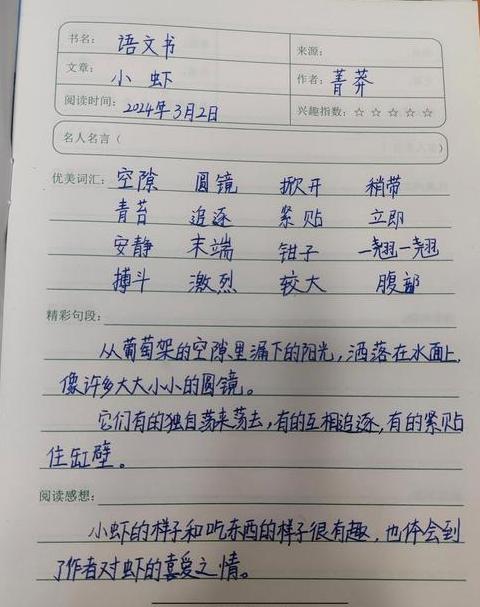 书名： 语文书 来源：
文章： 小虾 作者： 菁莽
阅读时间： 2024年3月2日 兴趣指数：☆☆☆☆☆
名人名言（ ）
优美词汇： 空隙 圆镜 掀开 稍带
青苔 追逐 紧贴 立即
安静 末端 钳子 一翘一翘
搏斗 激烈 较大 腹部
精彩句段：
从葡萄架的空隙里漏下的阳光，洒落在水面上，
像许多大大小小的圆镜。
它们有的独自荡来荡去，有的互相追逐，有的紧贴
住缸壁。
阅读感想：
小虾的样子和吃东西的样子很有趣，也体会到
了作者对虾的喜爱之情。